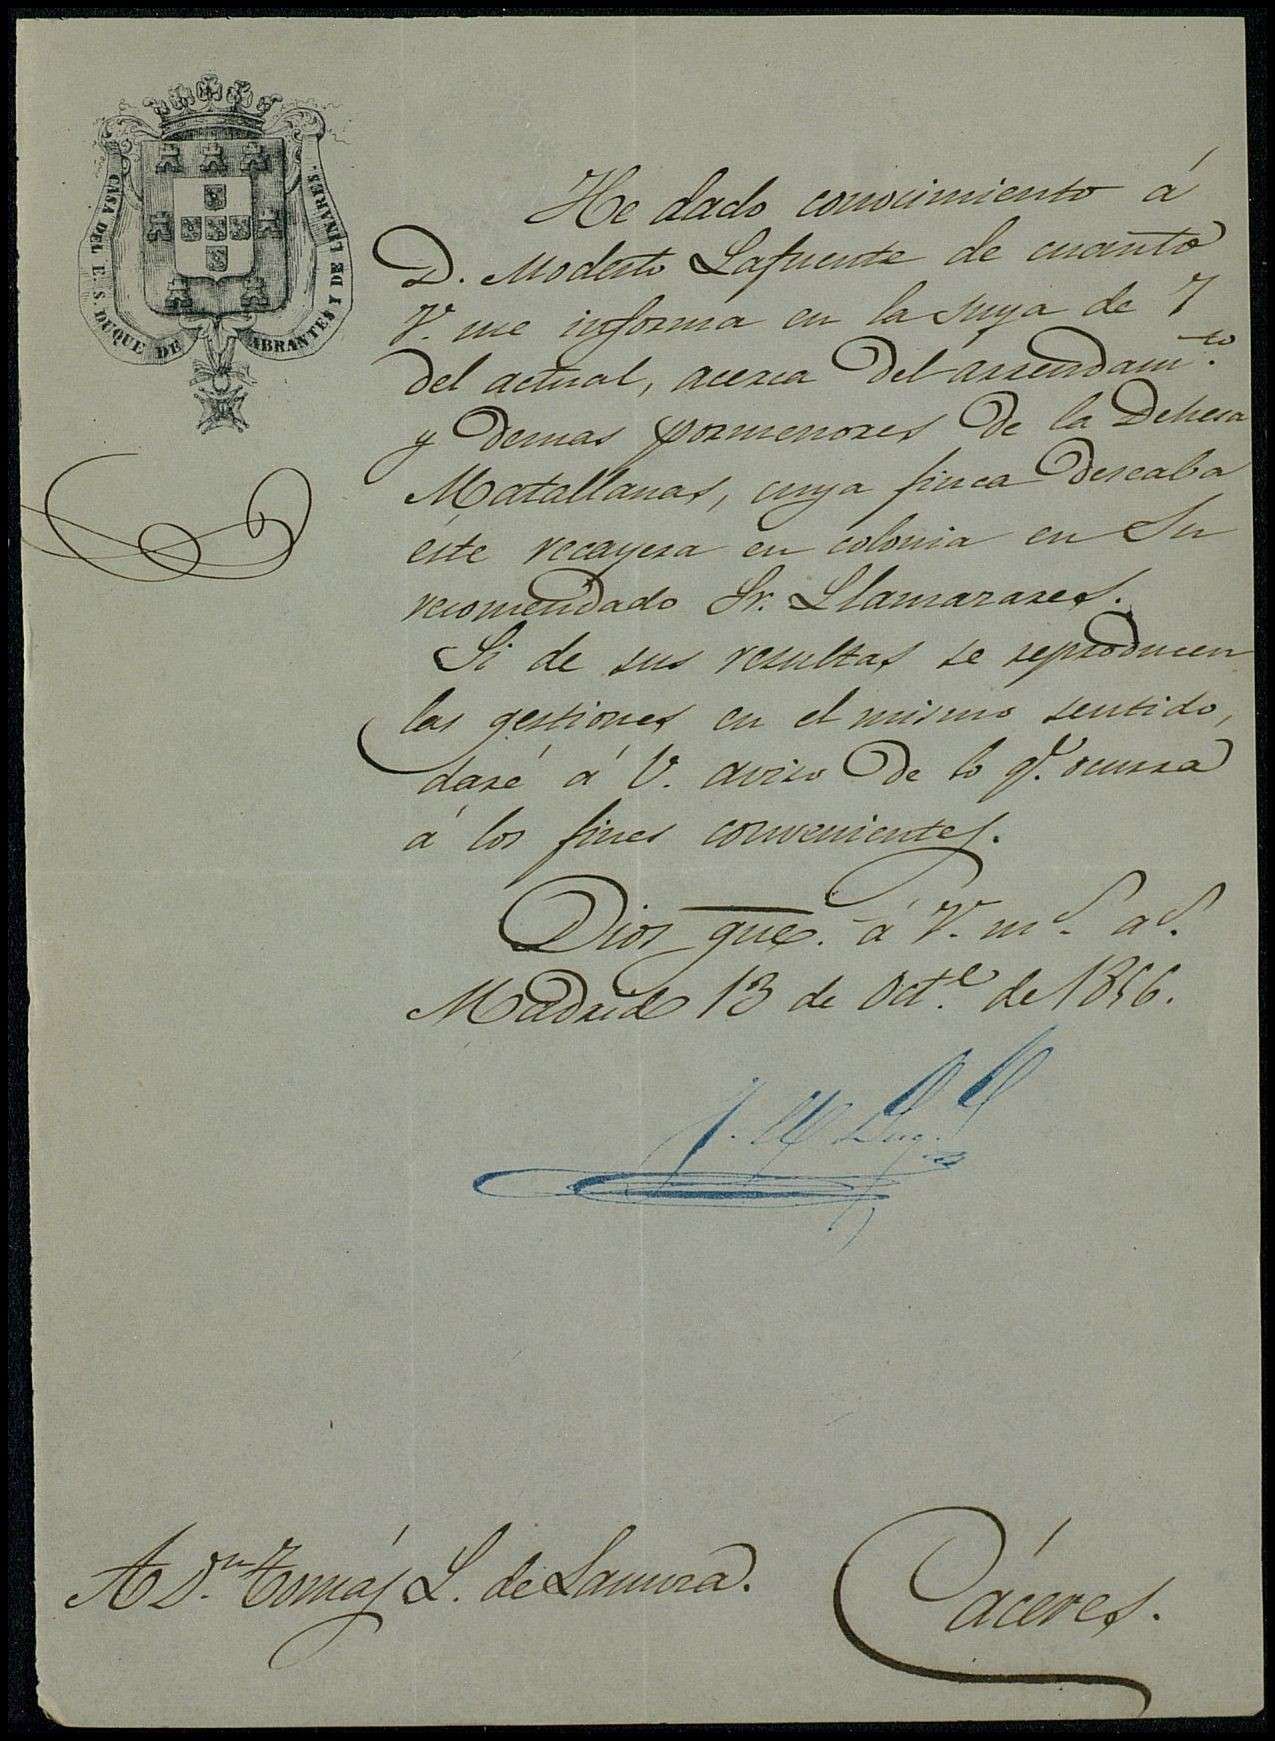 CASA DEL E. S. DUQUE DE ABRANTES Y DE LINARES.
He dado conocimiento á
D. Modesto Lafuente de cuanto
V. me informa en la suya de 7
del actual, acerca del arrendam.to
y demas pormenores de la Dehesa
Matallanas, cuya finca deseaba
éste recayera en colonia en su
recomendado Sr. Llamazares.
Si de sus resultas se reproducen
las gestiones en el mismo sentido,
daré á V. aviso de lo q.e ocurra
á los fines convenientes.
Dios gue. á V. m.s a.s
Madrid 13 de Oct.e de 1856.
A D.n Tomás L. de
Cáceres.